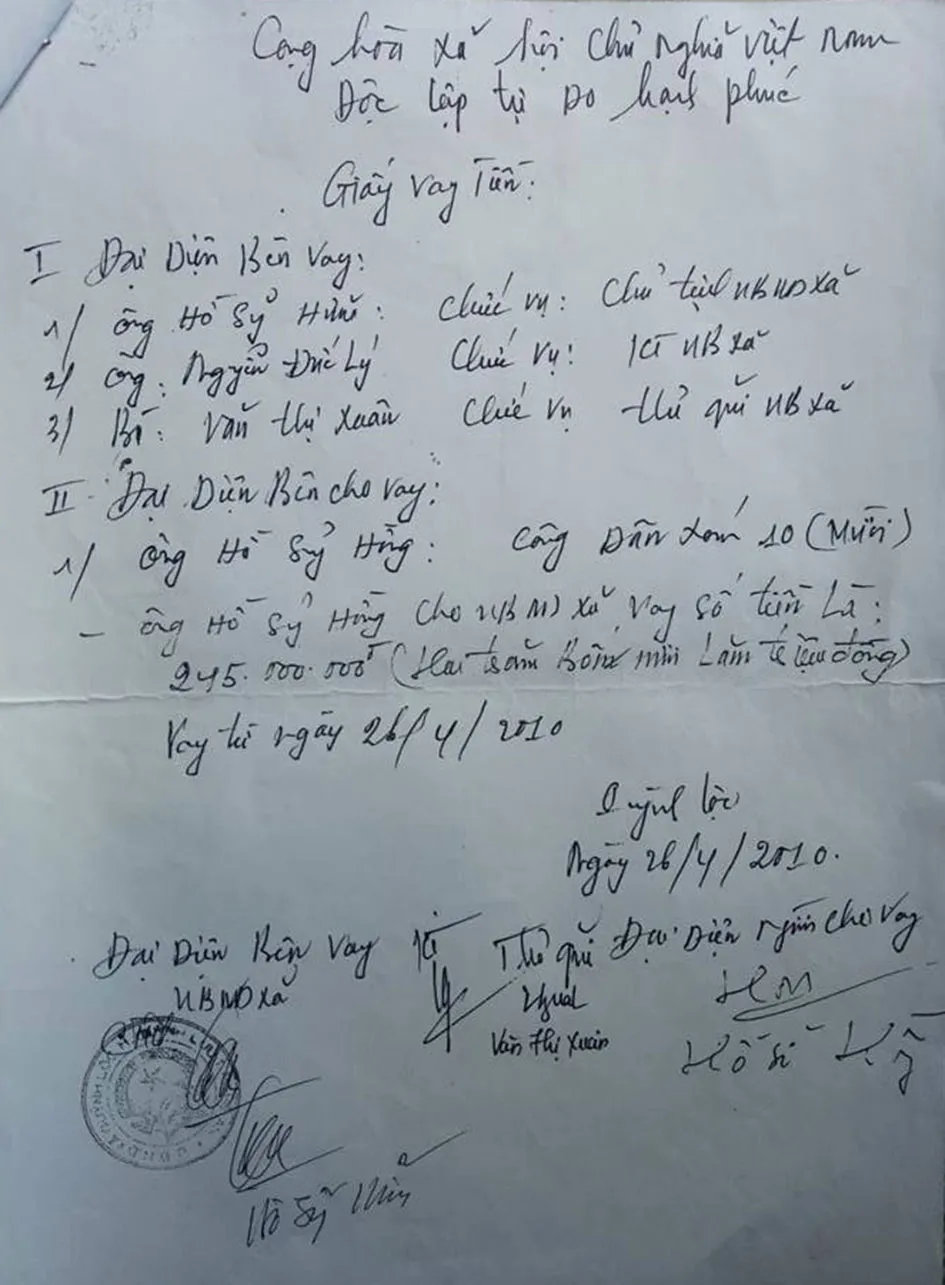 Cộng hòa xã hội chủ nghĩa việt nam
Độc lập tự do hạnh phúc
Giấy vay Tiền:
I Đại Diện Bên vay:
1/ ông Hồ Sỹ Hùng: Chức vụ: Chủ tịch UBND xã
2/ ông: Nguyễn Đức Lý Chức vụ: KT UB xã
3/ Bà: Văn thị xuân Chức vụ thủ quỹ UB xã
II - Đại Diện Bên cho vay:
1/ ông Hồ Sỹ Hồng: Công Dân xóm 10 (Mười)
- ông Hồ Sỹ Hồng cho UBND xã vay số tiền Là:
245.000.000đ (Hai trăm Bốn mươi Lăm triệu đồng)
Vay từ ngày 26/4/2010
Quỳnh lộc
Ngày 26/4/2010.
Đại Diện Bên vay KT Thủ quỹ Đại Diện người cho vay
UBND xã
Văn Thị Xuân
Hồ Sĩ
Hồ Sỹ Hùng